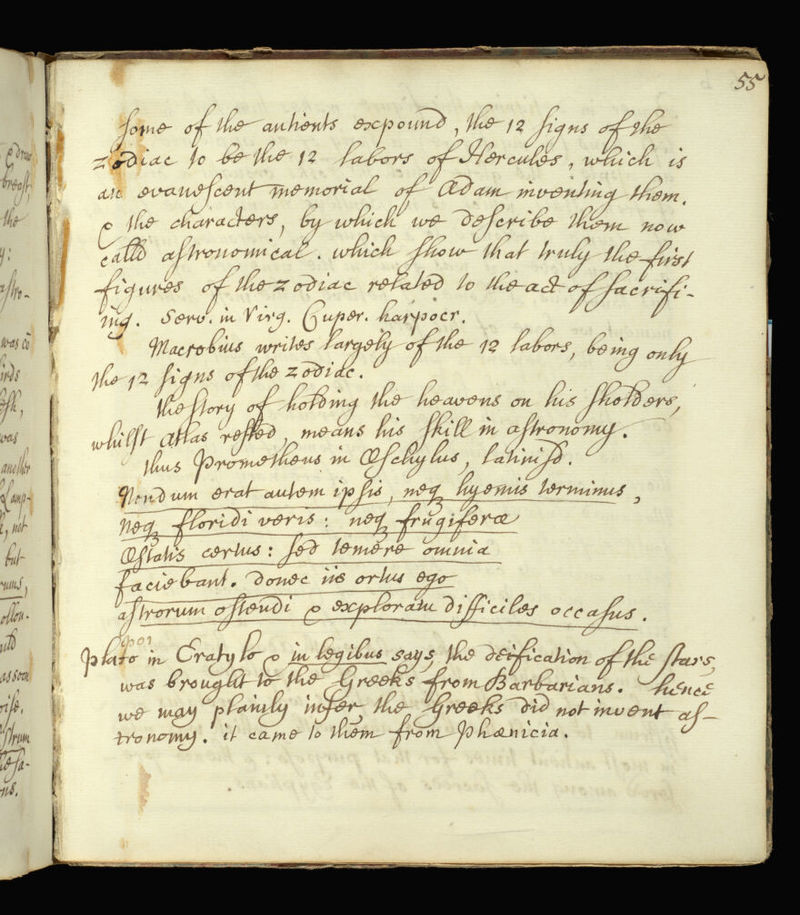 55
some of the antients expound, the 12 signs of the
zodiac to be the 12 labors of Hercules, which is
an evanescent memorial of Adam inventing them.
& the characters, by which we describe them now
calld astronomical. which show that truly the first
figures of the zodiac related to the act of sacrifi-
ing. Serv. in Virg. Cuper. harpocr.
Macrobius writes largely of the 12 labors, being only
the 12 signs of the zodiac.
the story of holding the heavens on his sholders,
whilst Atlas rested, means his skill in astronomy.
thus Prometheus in Æschylus, latinisd.
Nondum erat autem ipsis, neq hyemis terminus,
Neq floridi veris: neq frugiferæ
Æstatis certus: sed temere omnia
faciebant. donec iis ortus ego
astrorum ostendi & exploratu difficiles occasus.
Plato in Cratylo & in legibus says the deification of the stars,
was brought to the Greeks from Barbarians. hence
we may plainly infer the Greeks did not invent as-
tronomy. it came to them from Phænicia.